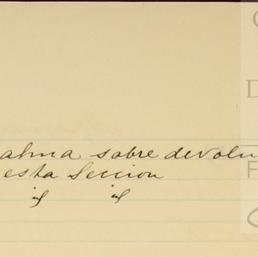 alma sobre devolu
esta Seccion
id id